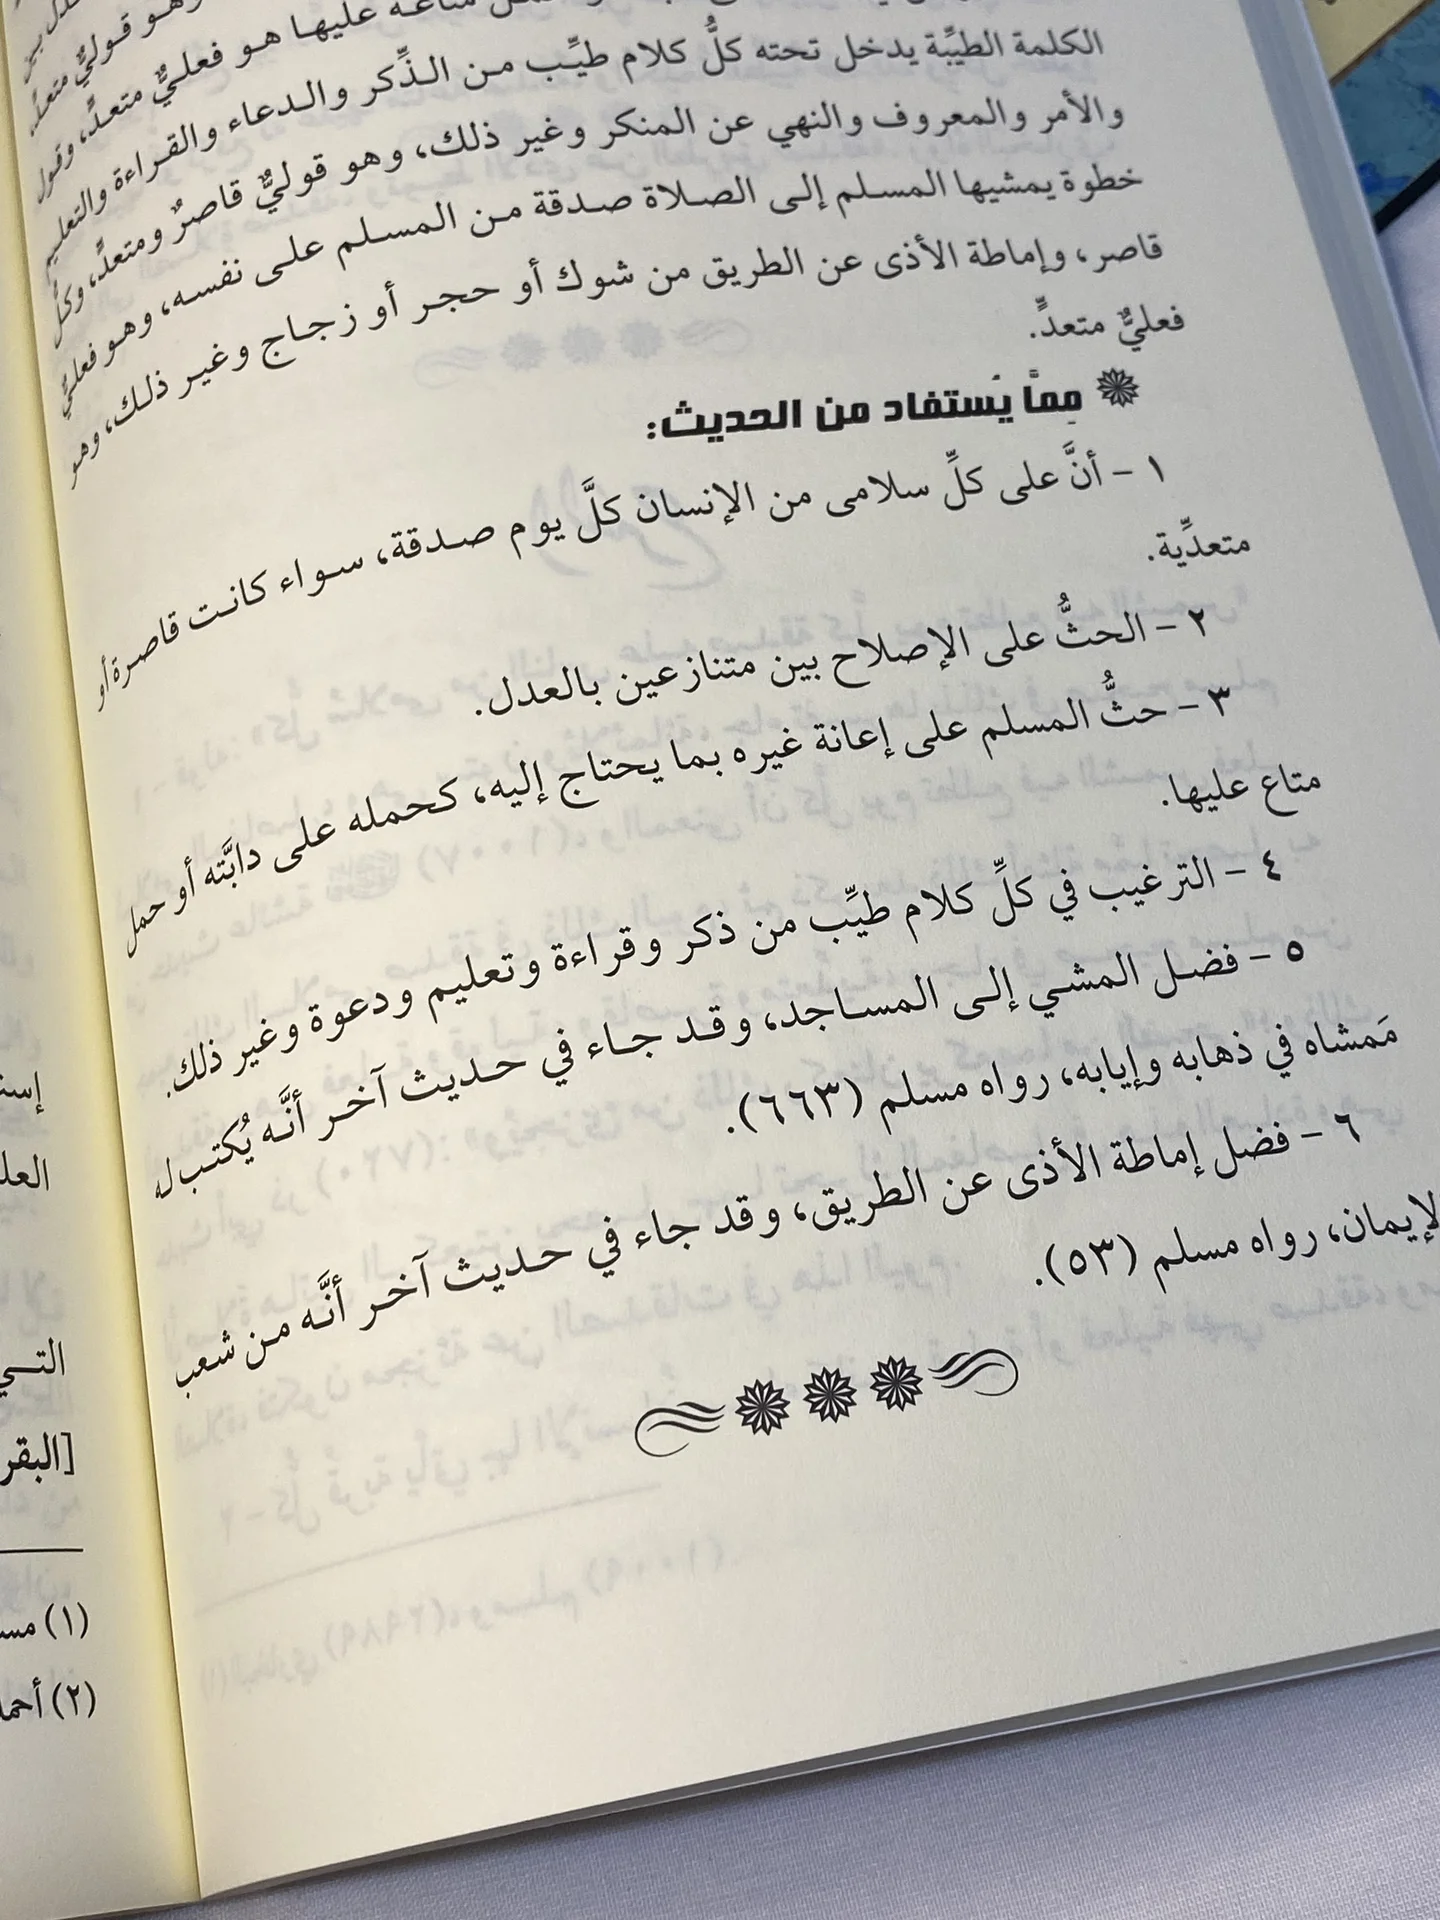 الكلمة الطيِّبة يدخل تحته كلُّ كلام طيِّب من الذِّكر والدعاء والقراءة والتعليم
والأمر والمعروف والنهي عن المنكر وغير ذلك، وهو قوليٌّ قاصرٌ ومتعدٍّ، وكلُّ
خطوة يمشيها المسلم إلى الصلاة صدقة من المسلم على نفسه، وهو فعليٌّ
قاصر، وإماطة الأذى عن الطريق من شوك أو حجر أو زجاج وغير ذلك، وهو
فعليٌّ متعدٍّ.
ممَّا يُستفاد من الحديث:
١ - أنَّ على كلِّ سلامى من الإنسان كلَّ يوم صدقة، سواء كانت قاصرة أو
متعدِّية.
٢ - الحثُّ على الإصلاح بين متنازعين بالعدل.
٣ - حثُّ المسلم على إعانة غيره بما يحتاج إليه، كحمله على دابَّته أو حمل
متاع عليها.
٤ - الترغيب في كلِّ كلام طيِّب من ذكر وقراءة وتعليم ودعوة وغير ذلك.
٥ - فضل المشي إلى المساجد، وقد جاء في حديث آخر أنَّه يُكتب له
مَمشاه في ذهابه وإيابه، رواه مسلم (٦٦٣).
٦ - فضل إماطة الأذى عن الطريق، وقد جاء في حديث آخر أنَّه من شعب
لإيمان، رواه مسلم (٥٣).
العل
التي
[البقر
(١) مس
(٢) أحم